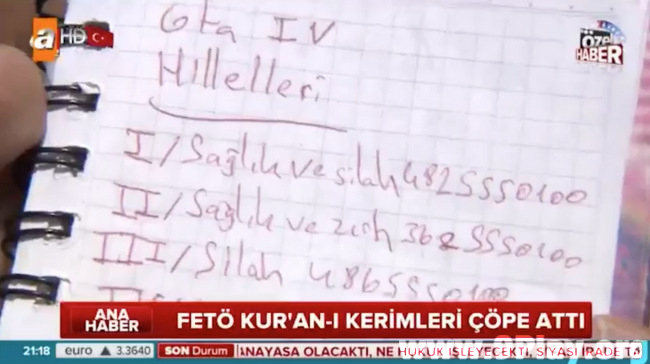 a HD
ÖZEL
HABER
Gta IV
Hillelleri
I/Sağlık ve silah 4825550100
II/Sağlık ve zırh 3625550100
III/Silah 4865550100
ANA
HABER
FETÖ KUR'AN-I KERİMLERİ ÇÖPE ATTI
21:18 euro ▲ 3.3640 SON Durum ANAYASA OLACAKTI, NE HUKUK İŞLEYECEKTİ, SİYASİ İRADE TA